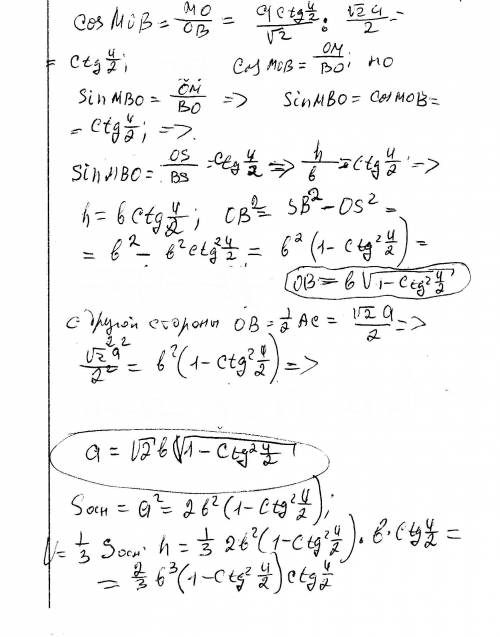 cos MOB = MO/OB = (a ctg φ/2)/√2 : √2a/2 =
= ctg φ/2; cos MOB = OM/BO; но
sin MBO = OM/BO => sin MBO = cos MOB =
= ctg φ/2; =>
sin MBO = OS/BS = ctg φ/2 => h/b = ctg φ/2 =>
h = b ctg φ/2; OB² = SB² - OS² =
= b² - b² ctg² φ/2 = b² (1 - ctg² φ/2) =
OB = b √(1 - ctg² φ/2)
с другой стороны OB = 1/2 AC = √2 a/2 =>
√2² a²/2² = b² (1 - ctg² φ/2) =>
a = √2 b √(1 - ctg² φ/2)
Sосн = a² = 2b² (1 - ctg² φ/2);
V = 1/3 Sосн · h = 1/3 2b² (1 - ctg² φ/2) · b · ctg φ/2 =
= 2/3 b³ (1 - ctg² φ/2) ctg φ/2